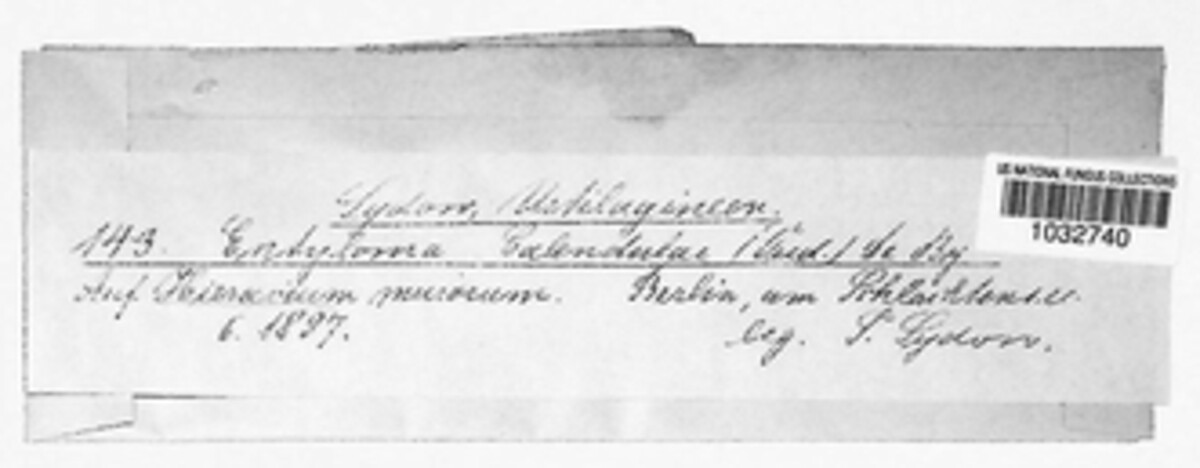 Sydow, Ustilagineen.
143. Entyloma Calendulae (Oud.) De By
Auf Hieracium murorum. Berlin, am Schlachtensee.
6. 1897.
leg. P. Sydow.
US NATIONAL FUNGUS COLLECTIONS
1032740